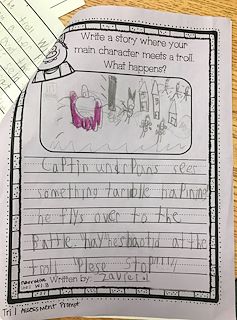 Write a story where your
main character meets a troll.
What happens?
Captin underpans sees
something taruble hapining
he flys over to the
Battle. hay he shaotid at the
troll Plese Stop!!!!
Written by: Zavier
Tri 1 ASSESSMENT Prompt